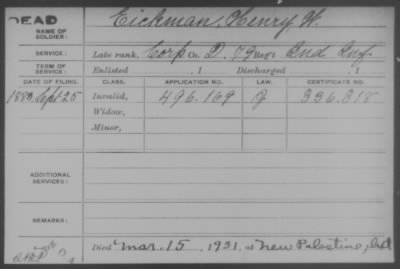 DEAD
NAME OF SOLDIER: Eickman, Henry W.
SERVICE: Late rank, Corp Co. D. 79 Reg't Ind Inf
TERM OF SERVICE: Enlisted , 1 Discharged , 1
DATE OF FILING. CLASS. APPLICATION NO. LAW. CERTIFICATE NO.
Sept 25 Invalid, 496.169 336.318
Widow,
Minor,
ADDITIONAL SERVICES:
REMARKS:
Died Mar. 15, 1921, at New Palestine, Ind